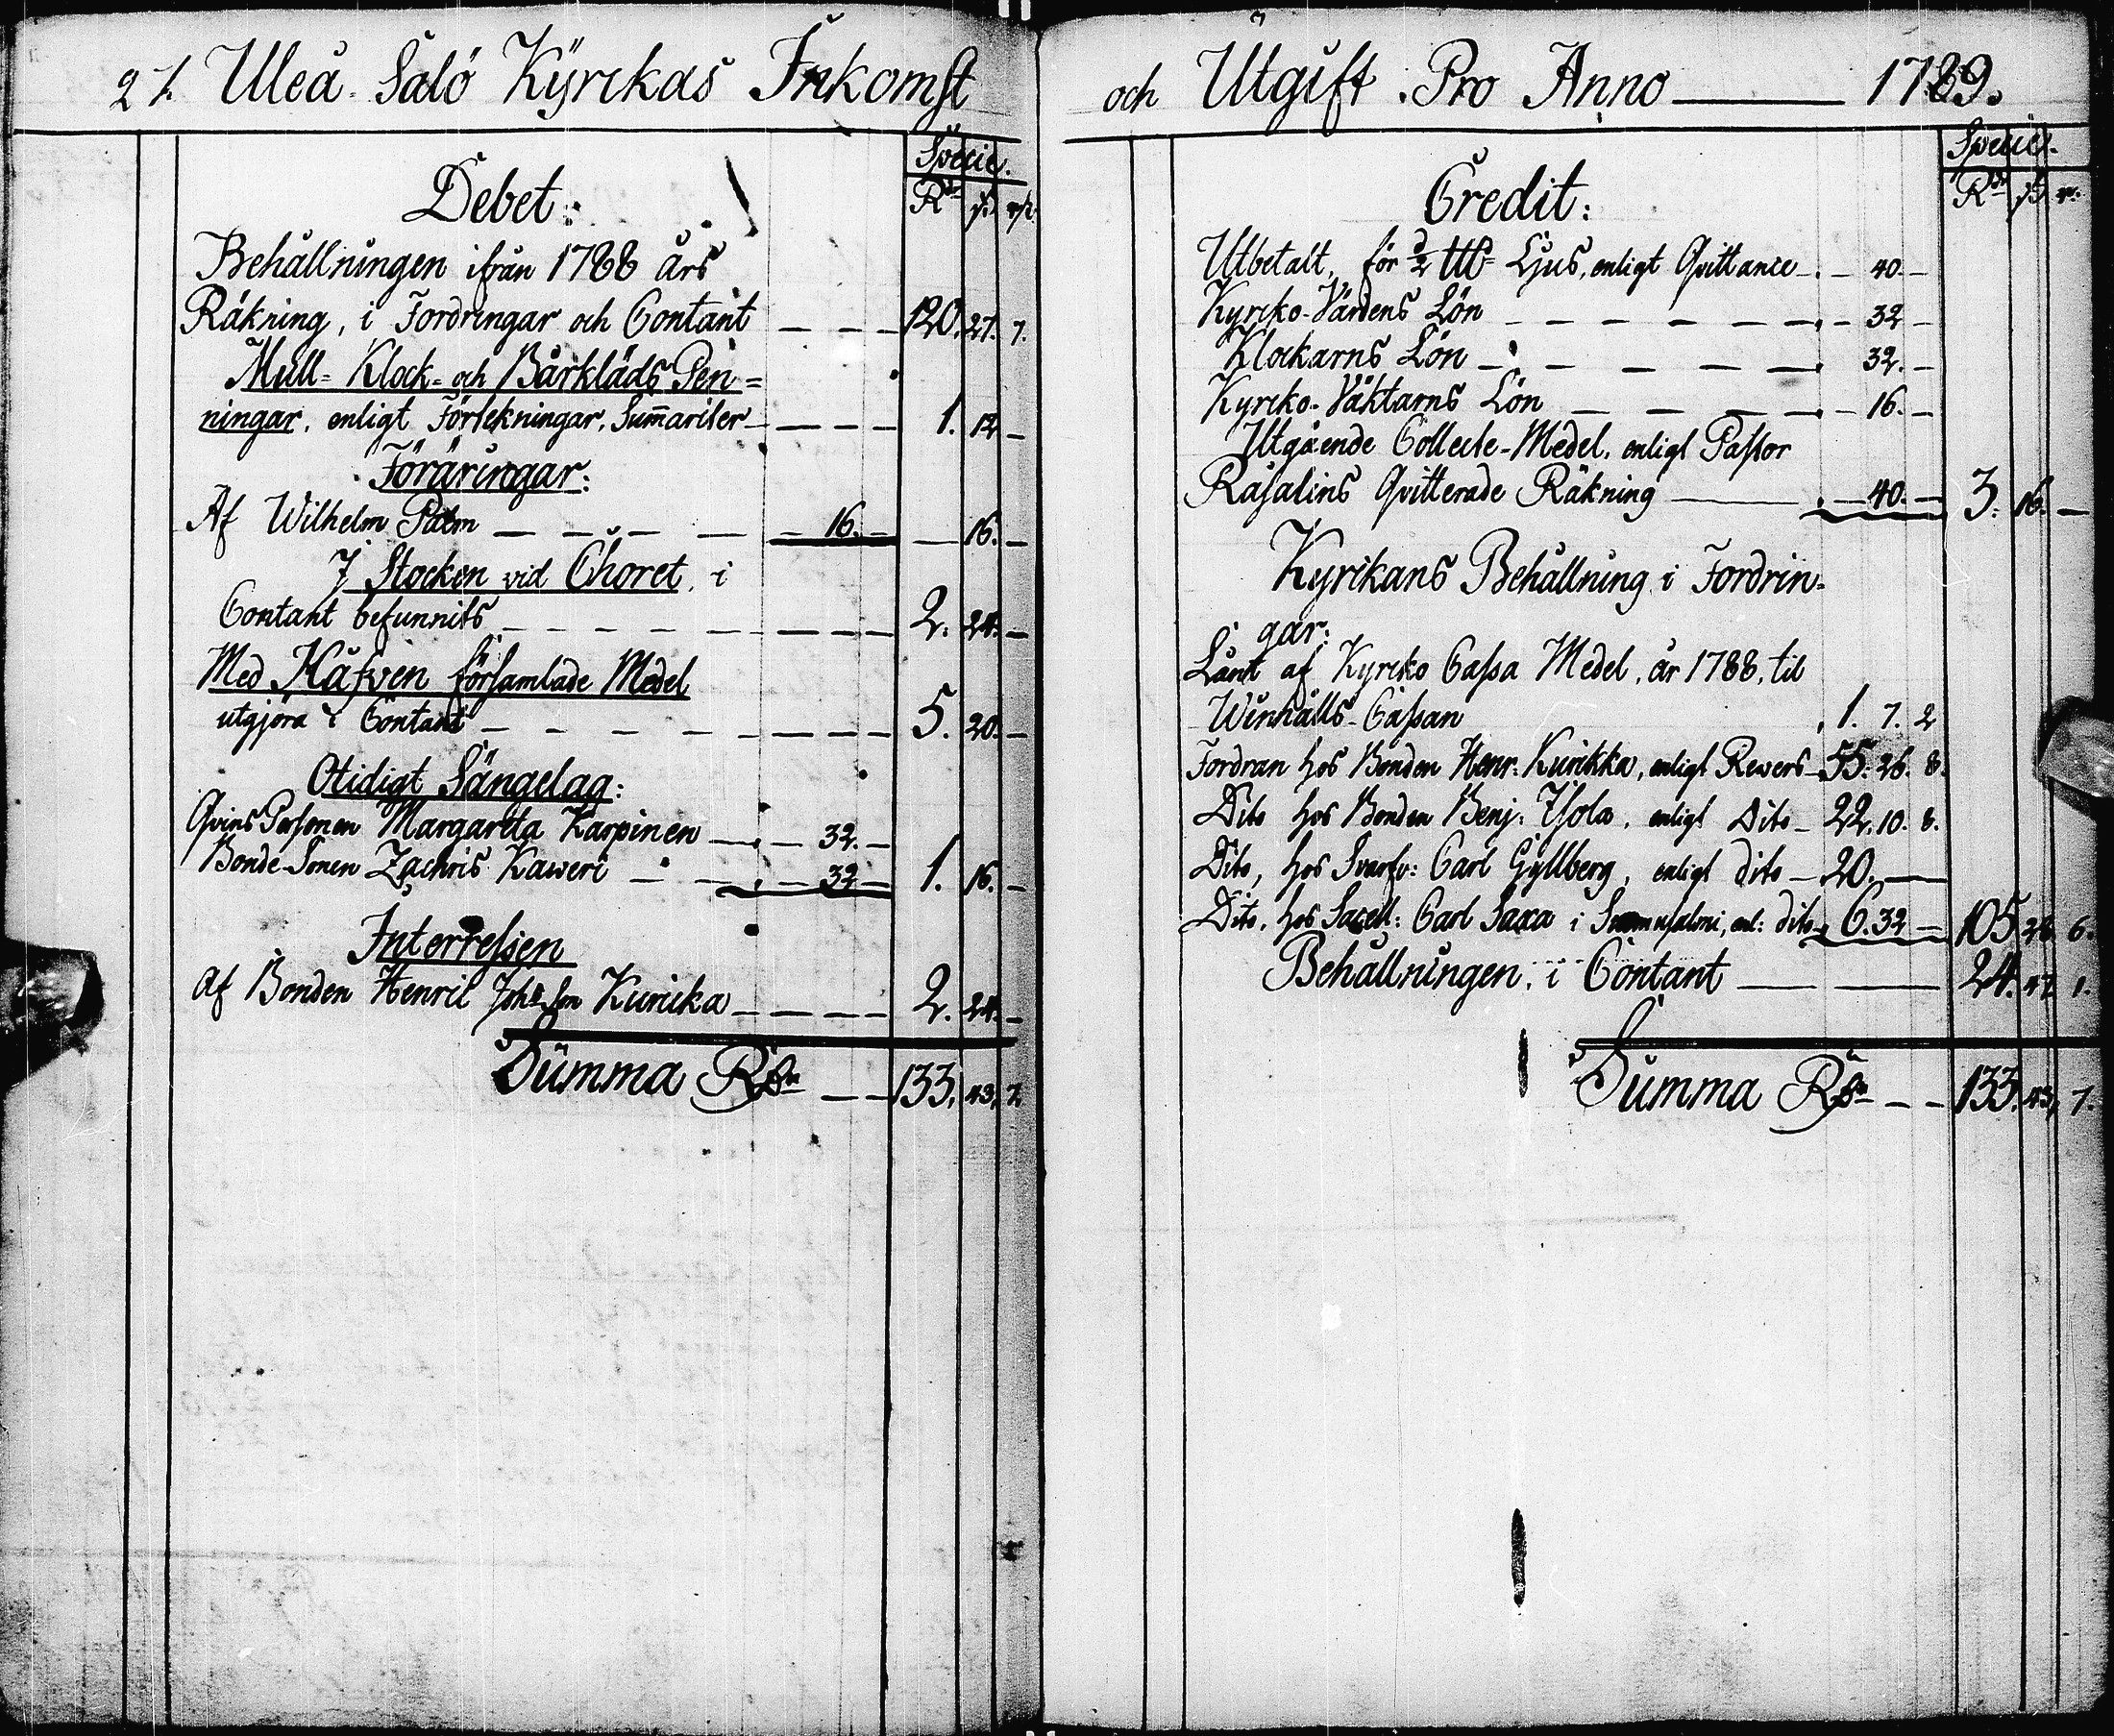 27. Uleå-Salo Kyrckas Inkomst
Specie.
Debet: Rdr ß. rst.
Behållningen ifrån 1788 års
Räkning, i Fordringar och Contant — — — 120. 27. 7.
Mull- Klock- och Bårkläds Pen=
ningar, enligt Förtekningar, Sum̄ariter — — — — 1. 12 —
Föräringar:
Af Wilhelm Palm — — — — — 16. — — 16. —
I Stocken vid Choret, i
Contant befunnits — — — — — — — — — 2. 24. —
Med Håfven församlade Medel
utgjöra i Contant — — — — — — — — — 5. 20. —
Otidigt Sängelag:
Qvins Personen Margareta Karpinen — — 32. —
Bonde-Sonen Zachris Kaweri — — — 32 — 1. 16. —
Interressen
af Bonden Henric Joh:Son Kuricka — — — — 2. 24. —
Summa Rdr — — 133. 43. 7.
och Utgift Pro Anno — 1789.
Specie.
Credit: Rdr ß r.
Utbetalt, för ½ Ljus, enligt Qvittance — . — 40. —
Kyrcko-Värdens Lön — — — — — — — 32 —
Klockarns Lön — — — — — — 32. —
Kyrcko-Väktarns Lön — — — — — 16. —
Utgående Collecte-Medel, enligt Pastor
Rasalins Qvitterade Räkning — — 40. — 3. 16. —
Kyrckans Behållning i Fordrin=
gar:
Lånt af Kyrcko Cassa Medel, år 1788, til
Winhålls-Cassan 1. 7. 2
Fordran hos Bonden Henr: Kurikka, enligt Rewers — 55. 26. 8.
Dito hos Bonden Benj: Isola, enligt Dito — 22. 10. 8.
Dito, hos Svarfv: Carl Gyllberg, enligt dito — 20. —
Dito, hos Sacell: Carl Saxa i enl: dito — 6. 32 — 105. 28. 6.
Behållningen, i Contant — — 24. 47. 1.
Summa Rdr — — 133. 43. 7.